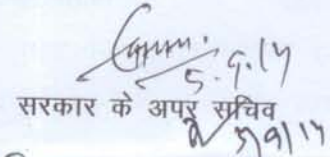 5.9.14
सरकार के अपर सचिव
5/9/14